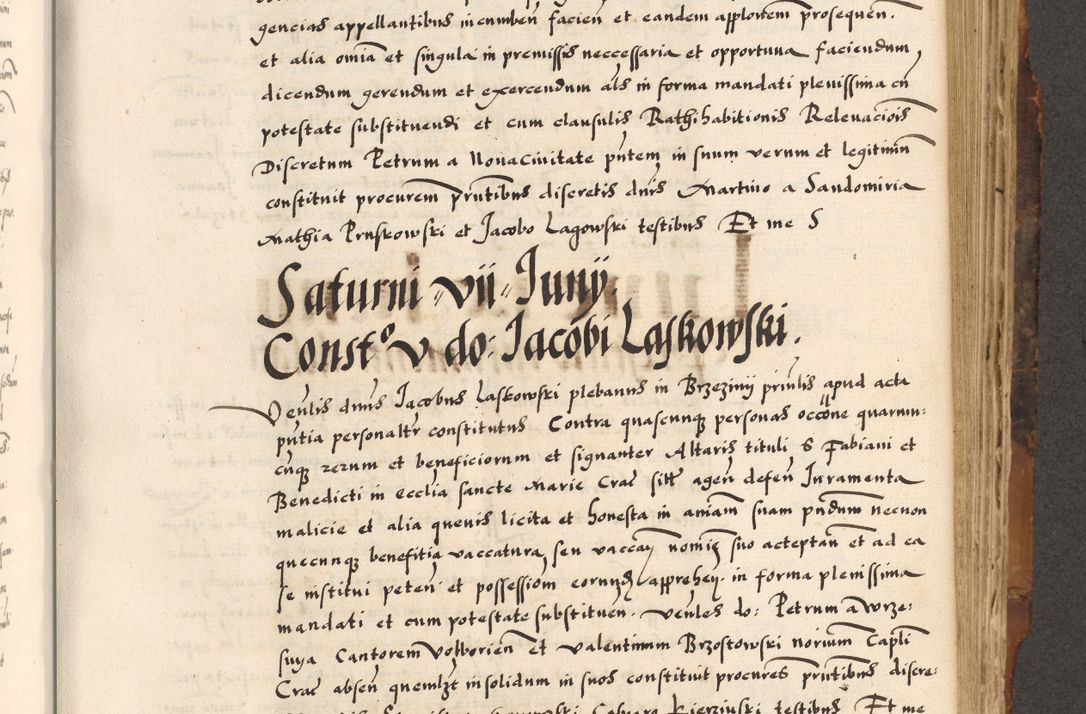 gencias appellantibus incumben facien et eandem applonem prosequen.
et alia omia et singula in premissis neccessaria et opportuna faciendum
dicendum gerendum et exercendum als in forma mandati plenissima cn
potestate substituendi et cum clausulis Rathihabitionis Relevaciois
Discretum Petrum a Novacivitate pntem in suum verum et legitimn
constituit procurem pntibus discretis dnis Martino a Sandomiria
Mathia Pruskowski et Jacobo Lagowski testibus Et me S
Saturni vii Junij.
Constº v do: Jacobi Laskowski.
Venlis dnus Jacobus Laskowski plebanus in Brzeziny prinlis apud acta
pntia personaltr constitutus Contra quascunque personas occone quarum:
cunque rerum et beneficiorum et signanter Altaris tituli S Fabiani et
Benedicti in Ecclia sancte Marie Crac sitt agen defen Juramenta
malicie et alia quevis licita et honesta in aniam suam pndum necnon
quecunque benefitia vaccatura seu vaccan nomine suo acceptan et ad ea
se institui peten et possessiom eorundem apprehen in forma plenissima
mandati et cum potestate substituen. Venles do: Petrum a Wrze:
snya Cantorem Volborien Et Valentinum Brzostowski norium Capli
Crac absen quemlzt insolidum in suos constituit procures pntibus discre:
Calvaro Kierzinski testibus Et me